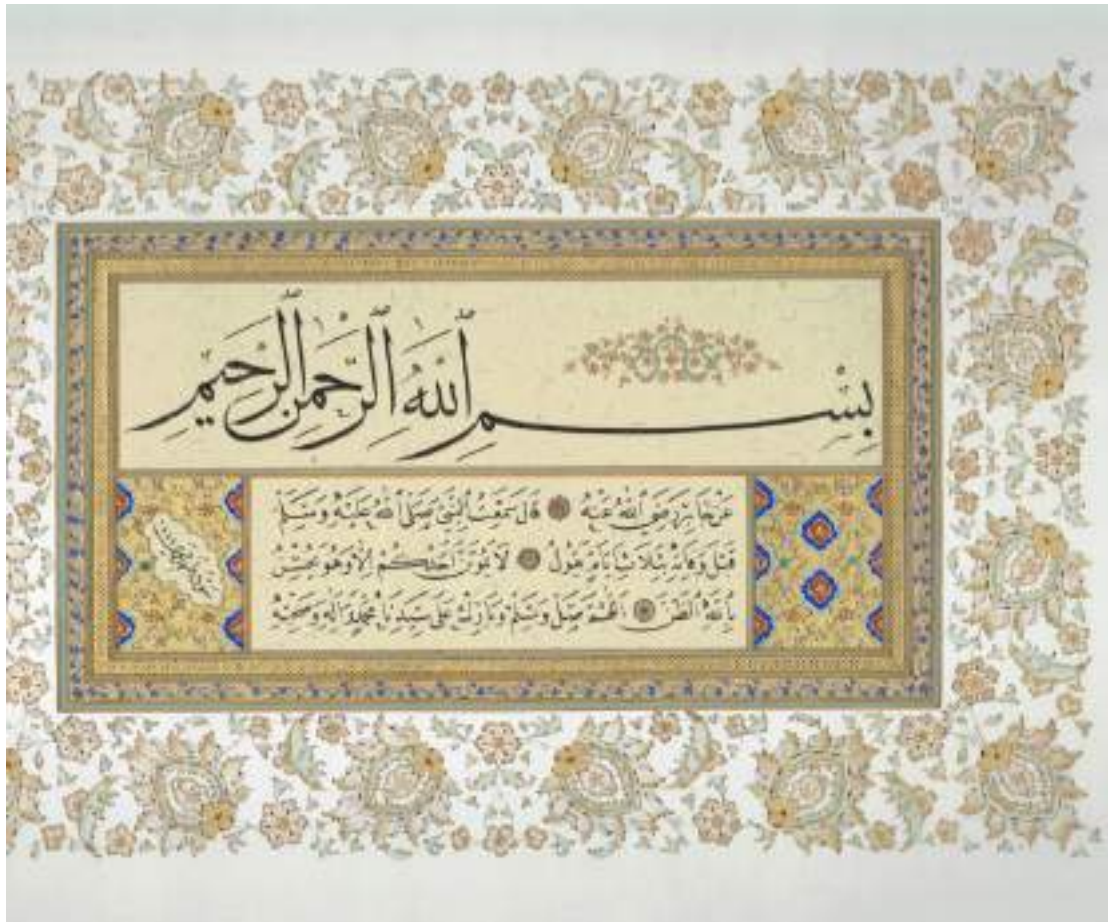 بِسْمِ اللهِ الرَّحْمٰنِ الرَّحِيمِ
عَنْ جَابِرٍ رَضِيَ اللهُ عَنْهُ قَالَ سَمِعْتُ النَّبِيَّ صَلَّى اللهُ عَلَيْهِ وَسَلَّمَ
قَبْلَ وَفَاتِهِ بِثَلَاثَةِ أَيَّامٍ يَقُولُ لَا يَمُوتَنَّ أَحَدُكُمْ إِلَّا وَهُوَ يُحْسِنُ
بِاللهِ الظَّنَّ اللّٰهُمَّ صَلِّ وَسَلِّمْ وَبَارِكْ عَلَى سَيِّدِنَا مُحَمَّدٍ وَآلِهِ وَصَحْبِهِ